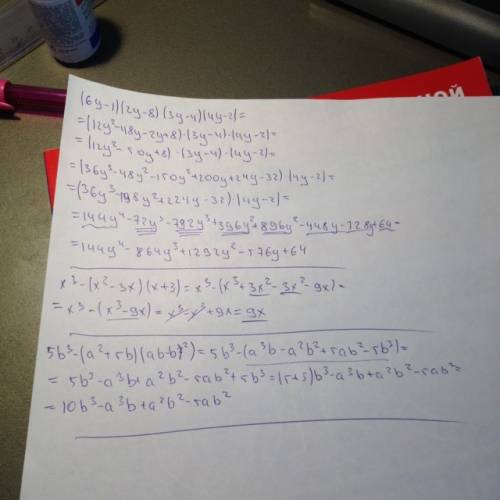 (6y-1)(2y-8)(3y-4)(4y-2)=
=(12y²-48y-2y+8)·(3y-4)·(4y-2)=
=(12y²-50y+8)·(3y-4)·(4y-2)=
=(36y³-48y²-150y²+200y+24y-32)·(4y-2)=
=(36y³-198y²+224y-32)·(4y-2)=
=144y⁴-72y³-792y³+396y²+896y²-448y-128y+64=
=144y⁴-864y³+1292y²-576y+64
x³-(x²-3x)(x+3)=x³-(x³+3x²-3x²-9x)=
=x³-(x³-9x)=x³-x³+9x=9x
5b³-(a²+5b)(ab-b²)=5b³-(a³b-a²b²+5ab²-5b³)=
=5b³-a³b+a²b²-5ab²+5b³=(5+5)b³-a³b+a²b²-5ab²=
=10b³-a³b+a²b²-5ab²
НОЙ